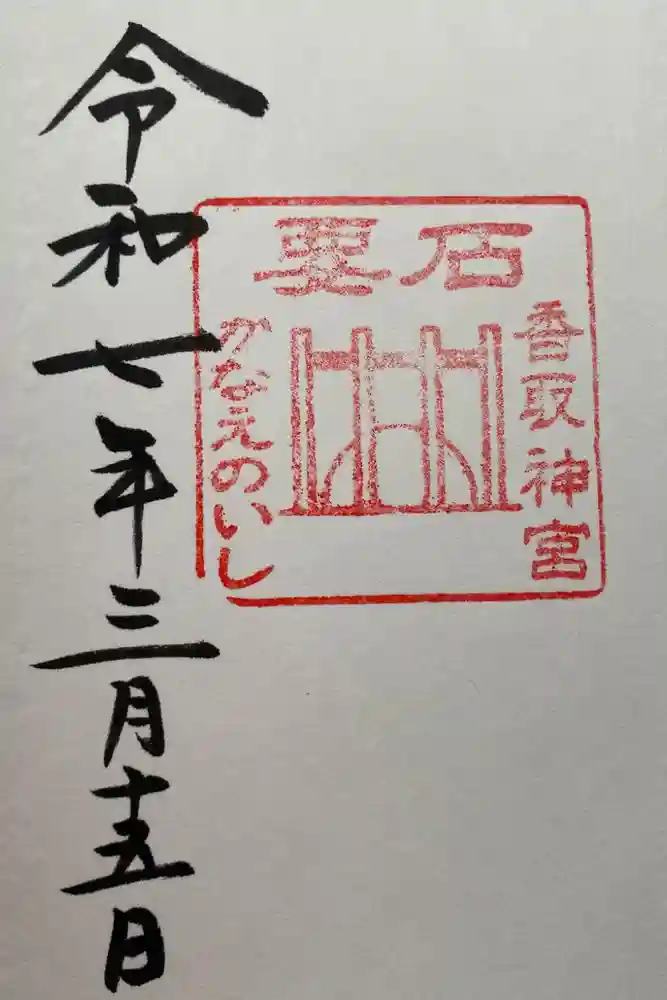 要石
香取神宮
かなえのいし
令和七年三月十五日